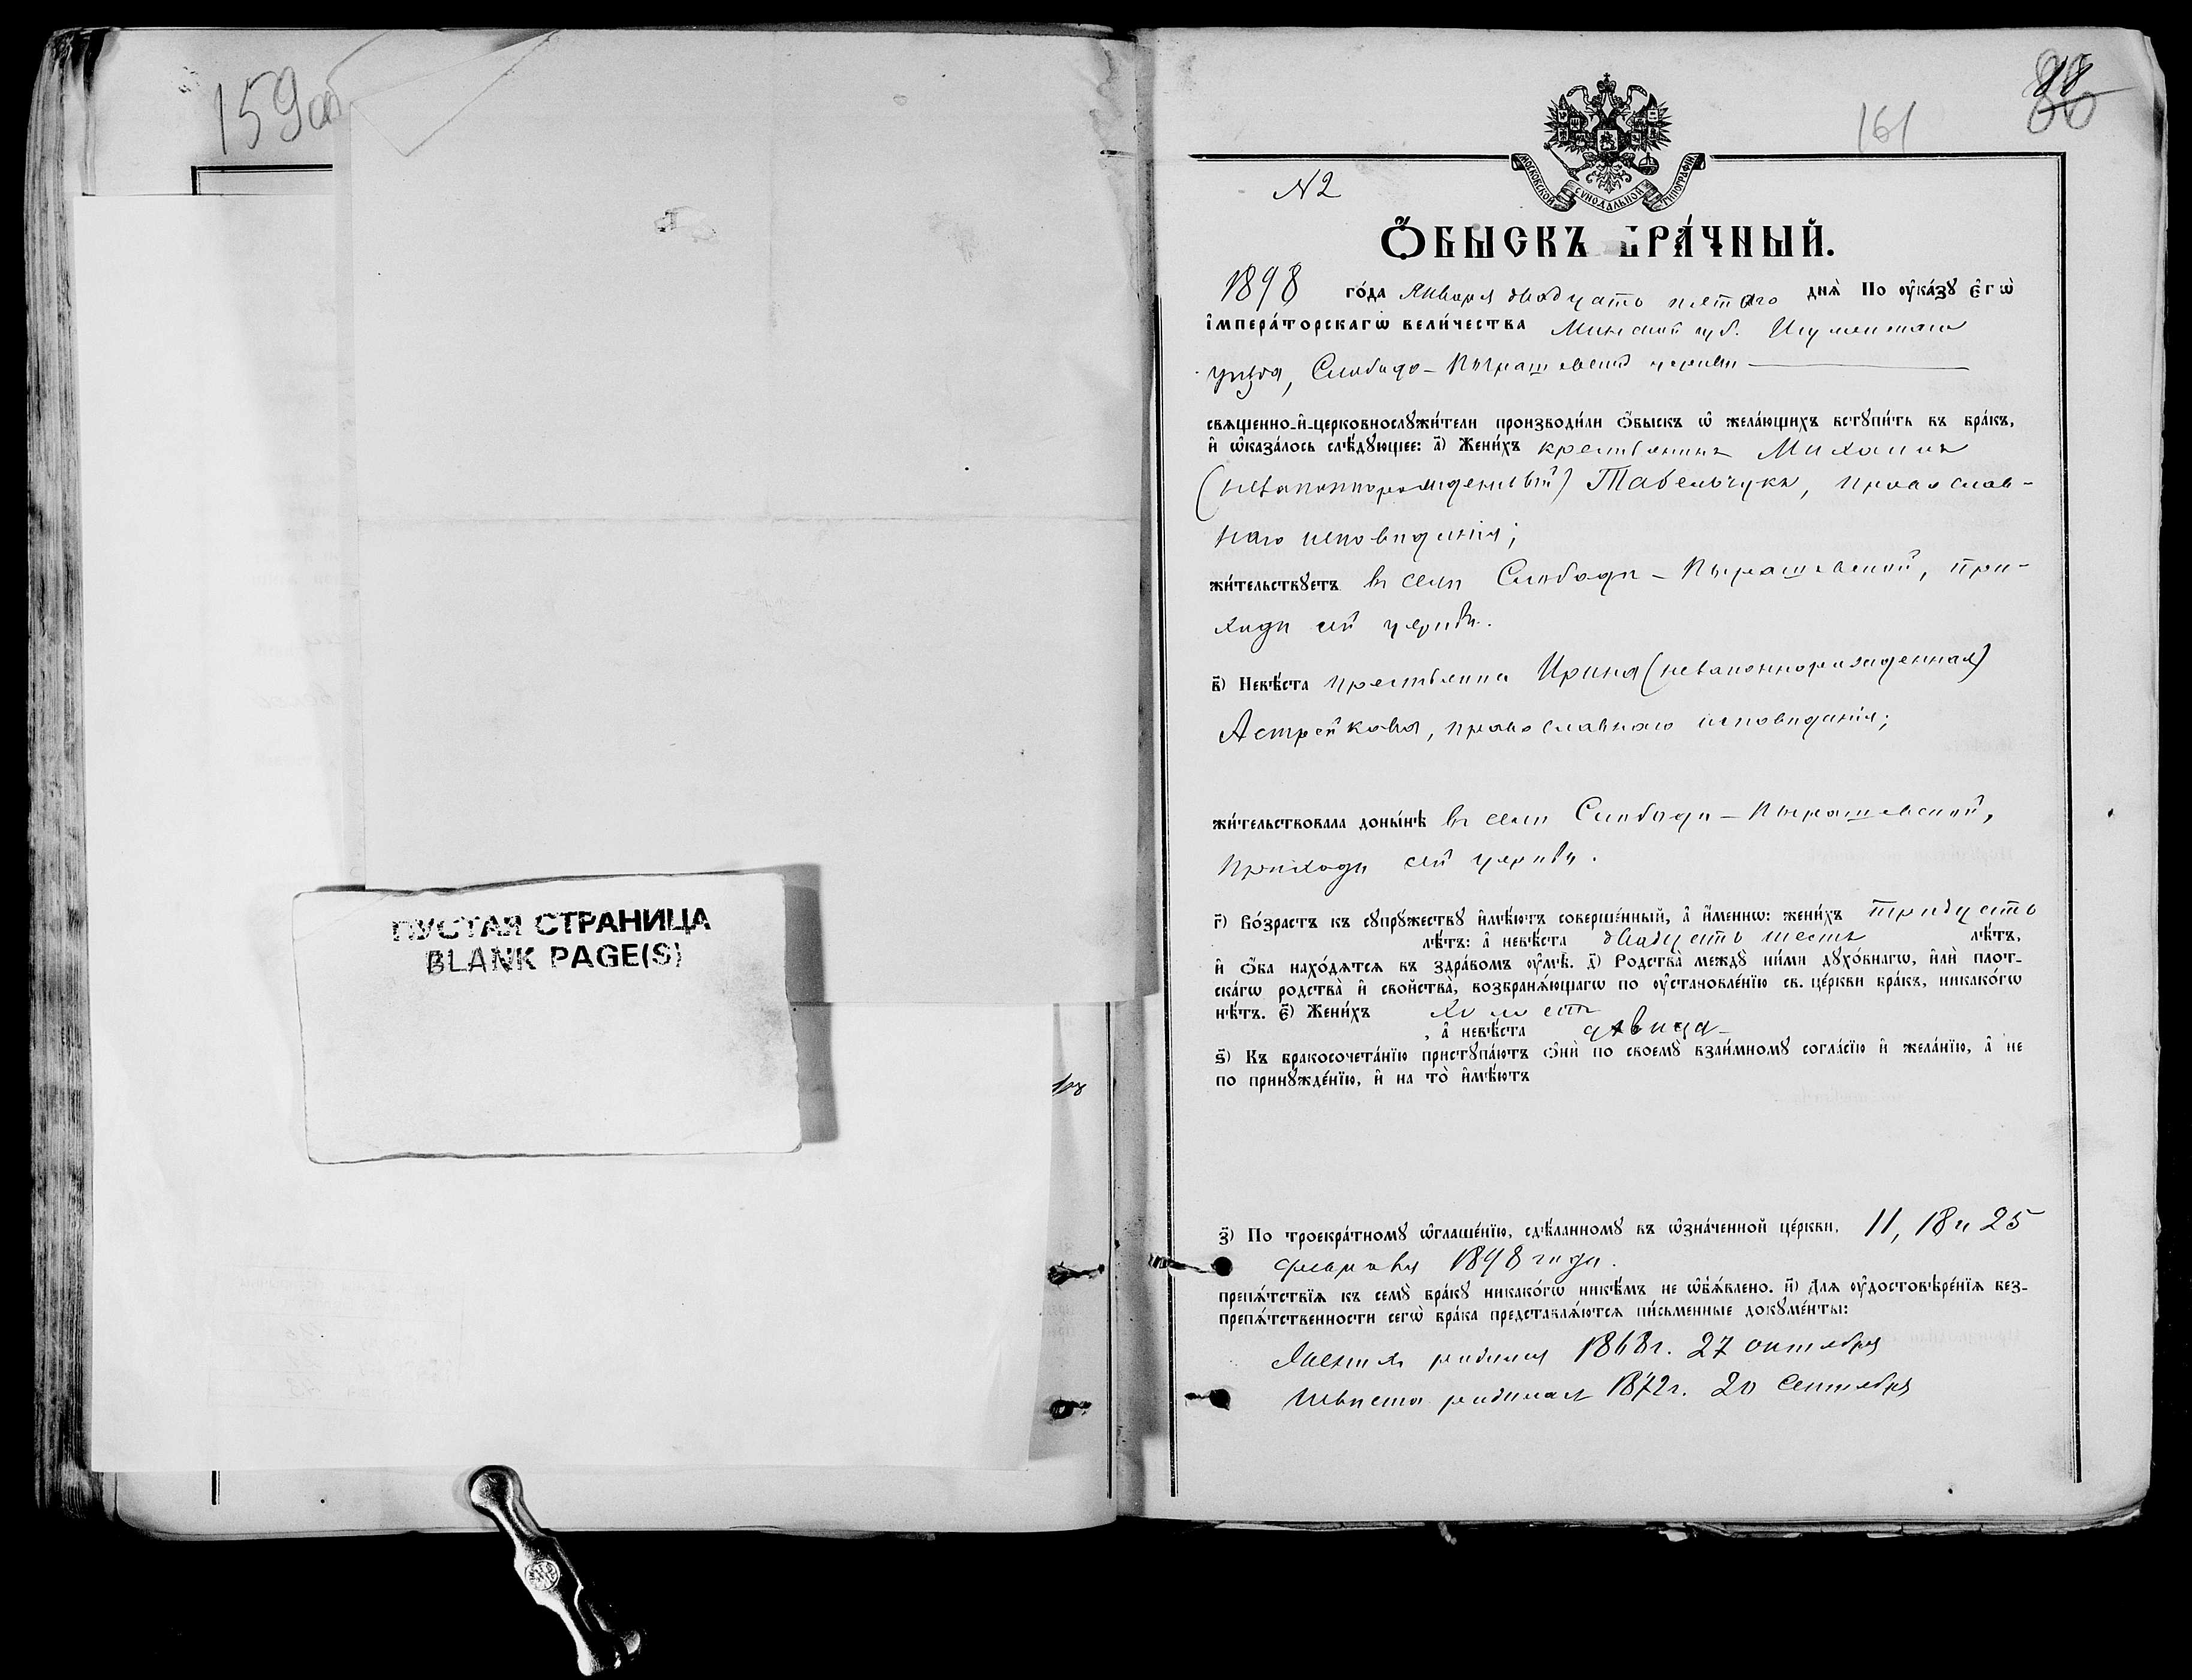 159об
ПУСТАЯ СТРАНИЦА
BLANK PAGE(S)
161
88
МОСКОВСКОЙ СѴНОДАЛЬНОЙ ТИПОГРАФІИ
N 2
Ѻ҆БЫСКЪ БРА́ЧНЫЙ.
1898 го́да Января двадцать пятаго днѧ̀ По ᲂу҆ка́зꙋ є҆гѡ̀
і҆мпера́торскагѡ вели́чества Минской губ. Игуменскаго
уѣзда, Слободо-Пырашевской церкви
свѧщенно-и҆-церковнослꙋжи́тели производи́ли ѻ҆́быскъ ѡ҆ жела́ющихъ встꙋпи́ть въ бра́къ,
и҆ ѡ҆каза́лось слѣ́дꙋющее: а҃) Жени́хъ крестьянинъ Михаилъ
(незаконнорожденный) Табельчукъ, православ-
наго исповѣданія;
жи́тельствꙋетъ въ селѣ Слободѣ-Пырашевской, при-
хода сей церкви.
в҃) Невѣ́ста крестьянка Ирина (незаконнорожденная)
Астрейкова, православнаго исповѣданія;
жи́тельствовала доны́нѣ въ селѣ Слободѣ-Пырашевской,
прихода сей церкви.
г҃) Во́зрастъ къ сꙋпрꙋ́жествꙋ и҆мѣ́ютъ соверше́нный, а҆ и҆́меннѡ: жени́хъ тридцать
лѣ́тъ: а҆ невѣ́ста двадцать шесть лѣ́тъ,
и҆ ѻ҆́ба нахо́дѧтсѧ въ здра́вомъ ᲂу҆мѣ̀. д҃) Родства̀ междꙋ̀ ни́ми дꙋхо́внагѡ, и҆лѝ плот-
ска́гѡ родства̀ и҆ свойства̀, возбранѧ́ющагѡ по ᲂу҆становле́нїю св. це́ркви бра́къ, никако́гѡ
нѣ́тъ. є҃) Жени́хъ холостъ
, а҆ невѣ́ста дѣвица
ѕ҃) Къ бракосочета́нїю пристꙋпа́ютъ ѻ҆нѝ по своемꙋ̀ взаи́мномꙋ согла́сїю и҆ жела́нїю, а҆ не
по принꙋжде́нїю, и҆ на то̀ и҆мѣ́ютъ
з҃) По троекра́тномꙋ ѡ҆глаше́нїю, сдѣ́ланномꙋ въ ѡ҆зна́ченной це́ркви, 11, 18 и 25
января 1898 года.
препѧ́тствїѧ къ семꙋ̀ бра́кꙋ никако́гѡ никѣ́мъ не ѡ҆б̾ѧ́влено. и҃) Длѧ ᲂу҆достовѣре́нїѧ без-
препѧ́тственности сегѡ̀ бра́ка представлѧ́ютсѧ пи́сьменные докꙋме́нты:
Женихъ родился 1868 г. 27 октября
Невѣста родилась 1872 г. 20 сентября